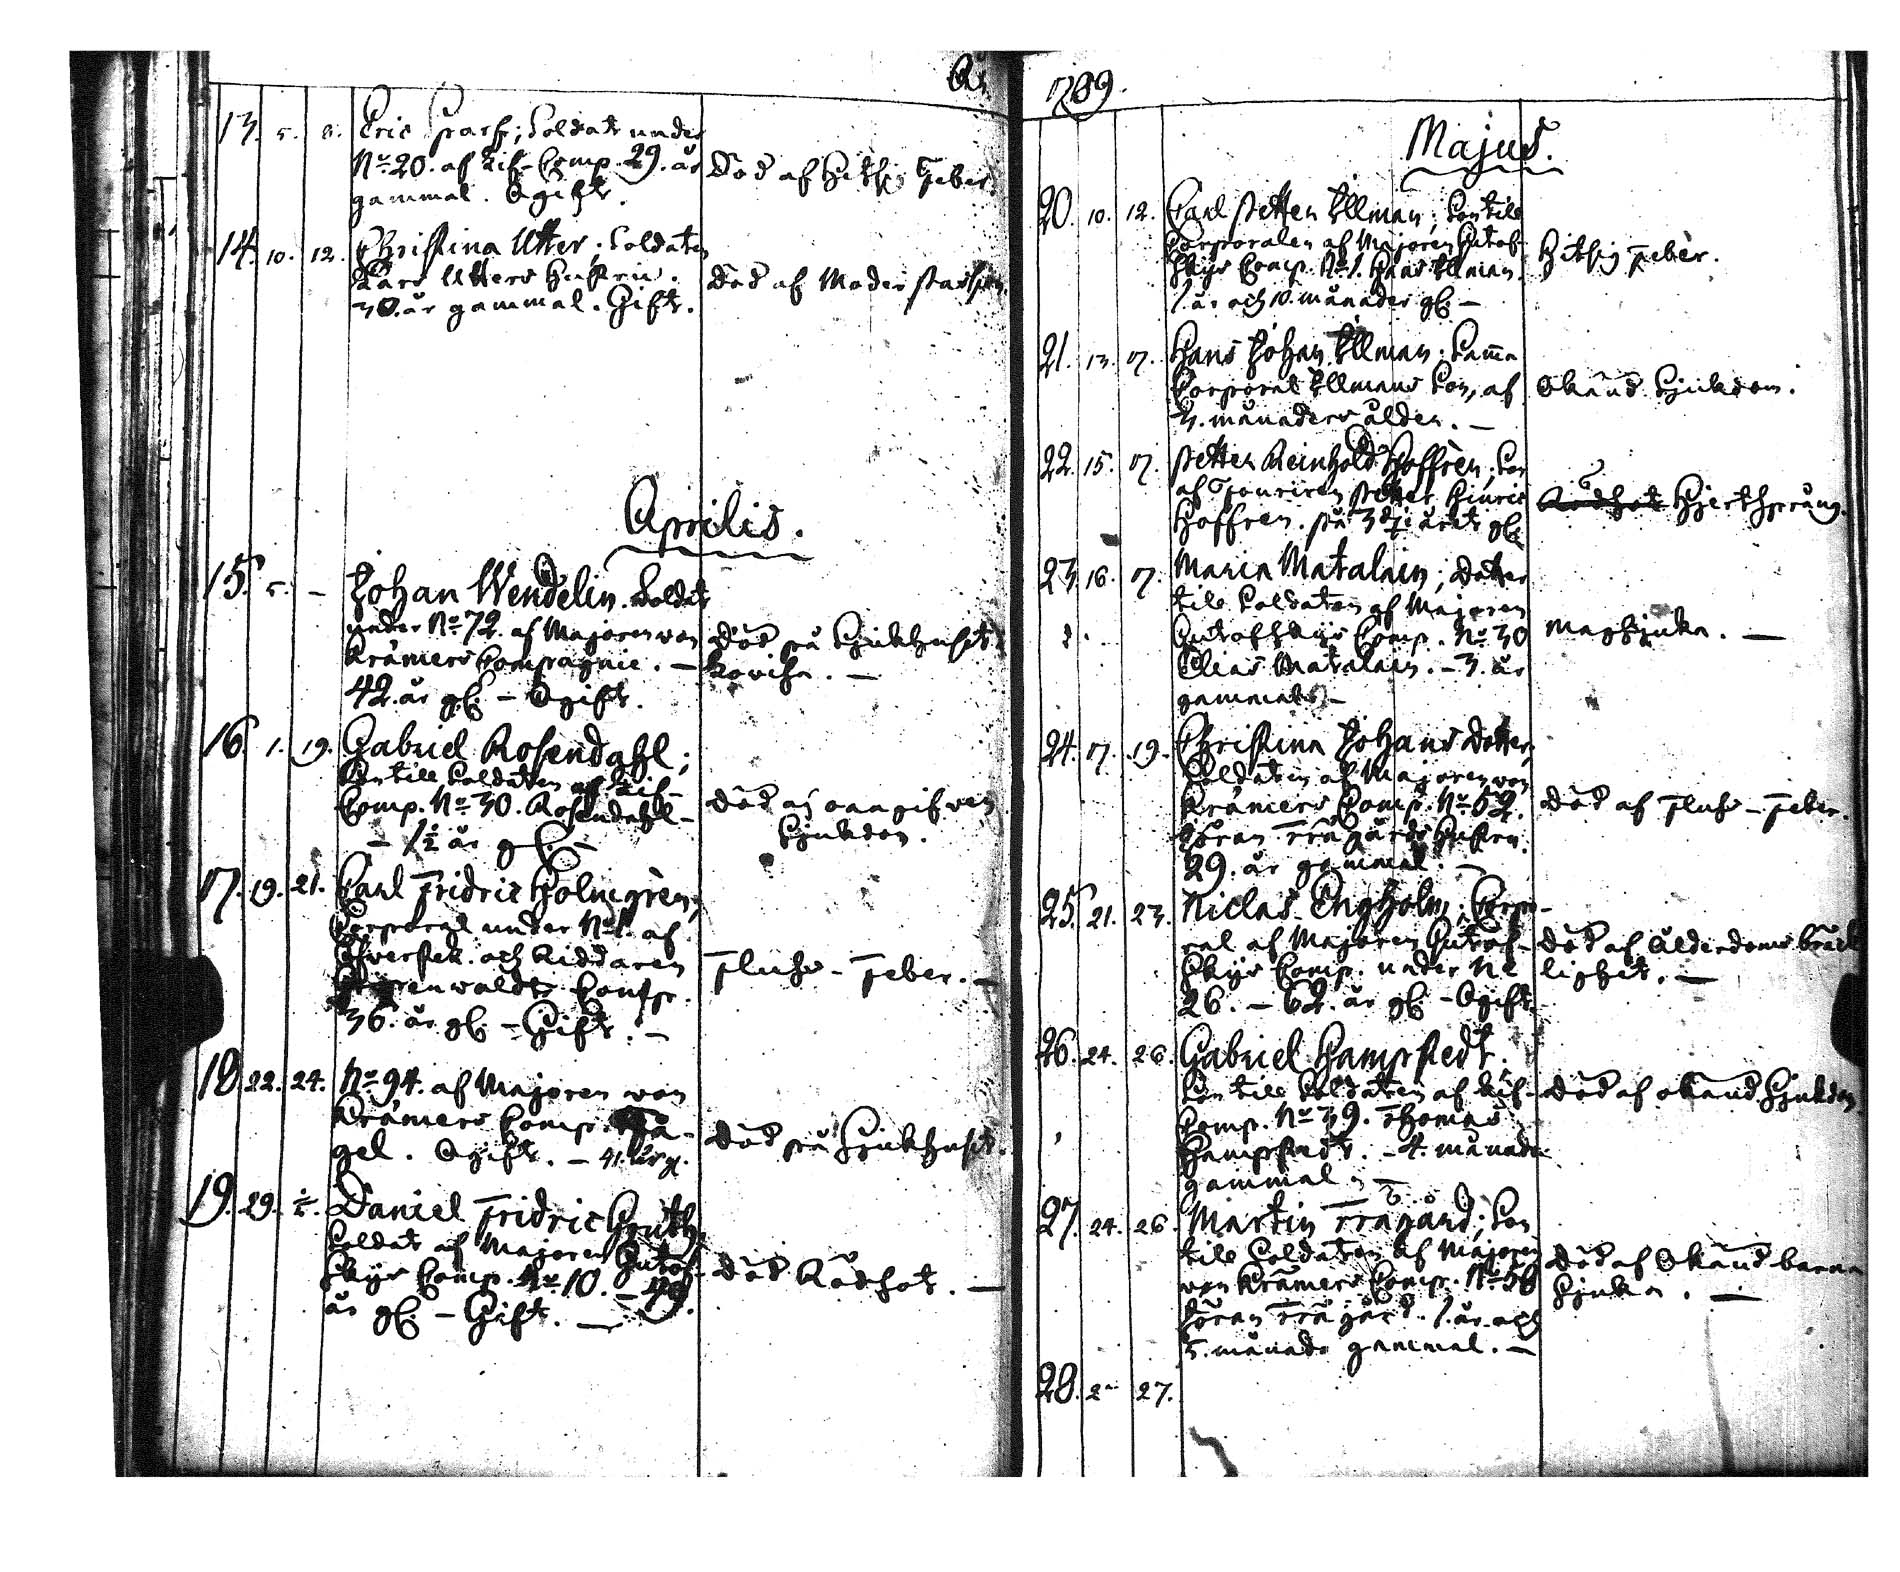 År
13. 5. 8. Eric Sparf; Soldat under
No 20. af Lif-Comp. 29. år
gammal. Ogift.
Död af Hitsig Feber.
14. 10. 12. Christina Utter; Soldaten
Lars Utters Hustru.
30. år gammal. Gift.
Död af Moder passion.
Aprilis.
15. 5. – Johan Wendelin. Soldat
under No 72. af Majoren von
Krämers Compagnie. –
42. år gl. – Ogift.
Död på Sjukhuset
16. 1. 19. Gabriel Rosendahl;
Son till Soldaten af Lif-
Comp. No 30. Rosendahl-
– 1½ år gl. –
Död af oangifven
Sjukdom.
17. 19. 21. Carl Fridric Holmgrèn;
Corporal under No 1. af
Öfversten och Riddaren
Comp.
36. år gl. – Gift. –
Fluss-Feber. –
18. 22. 24. No 94. af Majoren von
Krämers Comp.
gel. Ogift. – 41. år g.
Död på Sjukhuset.
19. 29. Daniel Fridric Gruth
Soldat af Majoren Gutof-
skys Comp. No 10. –
år gl. – Gift. –
Död Rödsot. –
1789.
Majus.
20. 10. 12. Carl Petter Ellman; Son till
Corporalen af Majoren Gutof-
skys Comp. No 1. Hans Ellman.
1. år och 10. månader gl. –
Hitsig Feber.
21. 13. 17. Hans Johan Ellman; Samma
Corporal Ellmans Son, af
3. månaders ålder. –
Okänd Sjukdom.
22. 15. 17. Petter Reinhold Hoffrèn; Son
af Fouriren Petter Hinric
Hoffren. på 3dje året gl.
Rödsot Hjertsprång.
23. 16. 17. Maria Matalain; Dotter
till Soldaten af Majoren
Gutofskys Comp. No 30
Elias Matalain. – 3. år
gammal –
Magsjuka. –
24. 17. 19. Christina Johans Dotter,
Soldaten af Majoren von
Krämers Comp. No 52.
Göran Trägårds Hustru.
29. år gammal. –
Död af Fluss-Feber.
25. 21. 23. Niclas Engholm; Corpo-
ral af Majoren Gutof-
skys Comp. under No
26. – 62. år gl – Ogift.
Död af Ålderdoms bräck
lighet. –
26. 24. 26. Gabriel Hampstedt.
Son till Soldaten af Lif-
Comp. No 39. Thomas
Hampstedt. – 4. månad
gammal. –
Död af okänd Sjukdom
27. 24. 26. Martin Trägård; Son
till Soldaten af Majoren
von Krämers Comp. No 56
Göran Trägård. 1. år och
5. månad gammal. –
Död af Okänd barna
sjuka. –
28. 27.